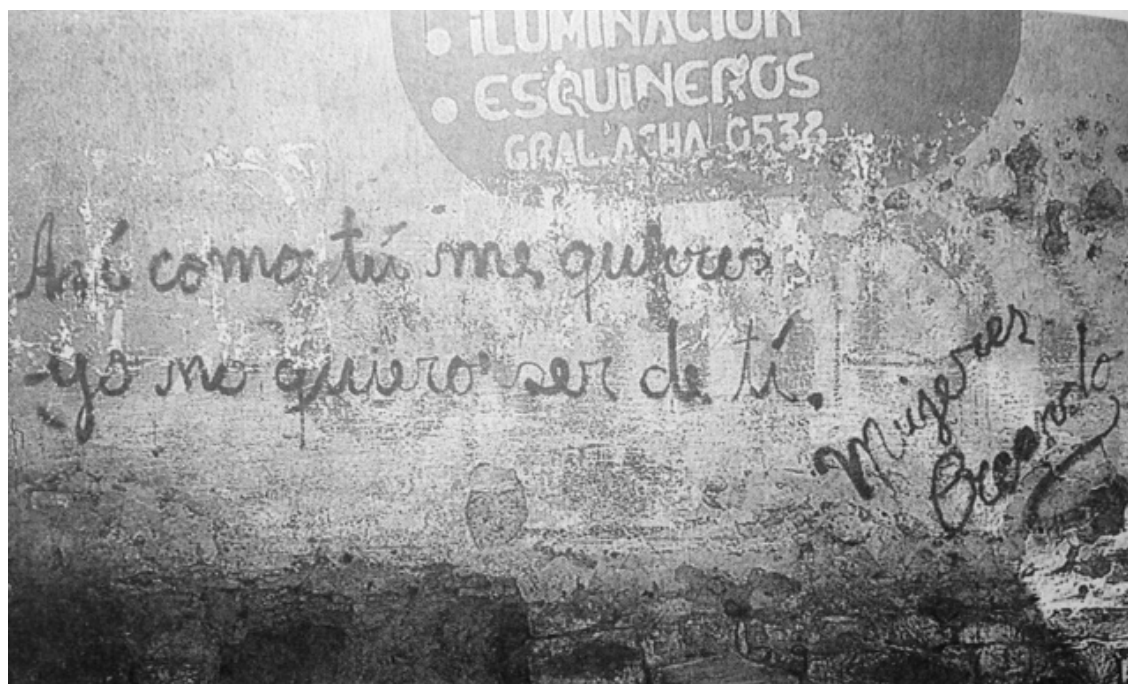 • iLUMINACION
• ESQUiNEROS
GRAL. ACHA 0538
Así como tú me quieres
yo no quiero ser de tí.
Mujeres
Creando